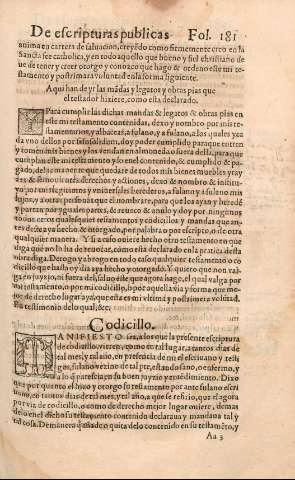 De escripturas publicas Fol. 181
anima en carrera de saluacion, creyẽdo como firmemente creo en la
Sancta fee catholica, y en todo aquello que bueno y fiel christiano de
ue de tener y creer otorgo y conozco que hago & ordeno este mi te
stamento y postrimara voluntad en la forma siguiente.
Aqui han de yr las mãdas y legatos y obras pias que
el testador hiziere, como esta declarado.
Para cumplir las dichas mandas & legatos & obras pias en
este mi testamento contenidas, dexo y nombro por mis te
stamentarios, y albaceas, a fulano, y a fulano, a los quales y a ca
da vno dellos por si in solidum, doy poder cumplido para que entren
y tomen mis bienes y los vendan en almoneda o fuera della, para que
cumplan este mi testamento y lo en el contenido, & cumplido & pa
gado, del remanente que quedare de todos mis bienes muebles y ray
zes & semouientes derechos y actiones, dexo & nombro & institu
yo por mis legitimos y vniuersales herederos, a fulano y a fulano mis
hijos, y a otras personas que el nombrare, para que los ayan y hereden
y partan por yguales partes, & reuoco & anullo y doy por ningunos
otros qualesquier testamentos y codicillos y mandas que an
tes deste aya hecho & otorgado, por palabra o por escripto, o de otra
qualquier manera. Y si a caso uiere hecho otro testamento en que
diga que non le ha de reuocar, como esta declarado en la pratica desta
obra diga. Derogo y abrogo en todo caso qualquier testamento o co
dicillo que hasta oy dia aya hecho y otorgado. Y quiero que non val
ga en juyzio, ni fuera del, saluo este que agora hago, el qual valga por
mi testamento, o por mi codicillo, o por aquella via y forma que me
jor de derecho lugar aya, que esta es mi vltima y postrimera volutad.
En testimonio delo qual, &c.
Codicillo.
MANIFIESTO sea, a los que la presente escriptura
de codicillo, vieren, como en tal lugar, a tantos dias de
tal mes, y tal año, en presencia de mi el escriuano y testi
gos, fulano vezino de tal pte, estando sano, o enfermo, y
en su buen juyzio y entẽdimiento. Dixo
que por quanto el hizo y otorgo su testamento por ante fulano escri
uano, en tantos dias de tal mes, y tal año, a que se refirio, que el agora
por via de codicillo, o como de derecho mejor lugar ouiere, demas
delo en el dicho su testamento contenido declaraua y mandaua tal y
tal cosa. De manera q̃ añade o quita delo contenido en su testamẽto, y
Aa 3